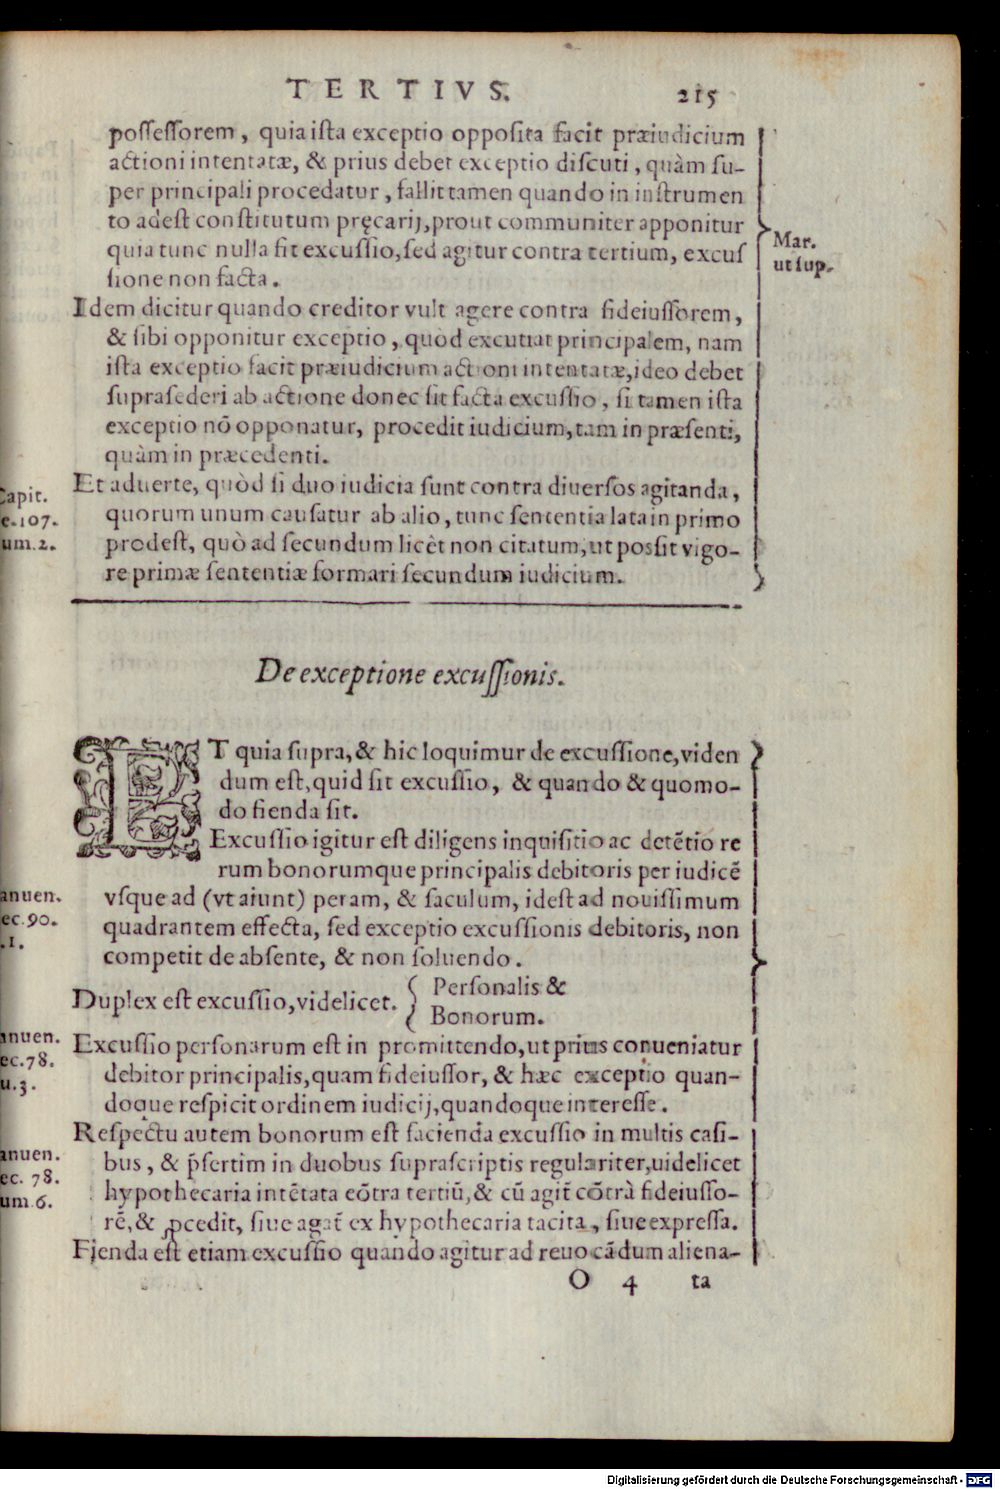 TERTIVS. 215
possessorem, quia ista exceptio opposita facit præiudicium
actioni intentatæ, & prius debet exceptio discuti, quàm su-
per principali procedatur, fallit tamen quando in instrumen
to adest constitutum pręcarij, prout communiter apponitur
quia tunc nulla fit excussio, sed agitur contra tertium, excus
sione non facta.
Mar.
ut sup.
Idem dicitur quando creditor vult agere contra fideiussorem,
& sibi opponitur exceptio, quòd excutiat principalem, nam
ista exceptio facit præiudicium actioni intentatæ, ideo debet
suprasederi ab actione donec sit facta excussio, si tamen ista
exceptio nō opponatur, procedit iudicium, tam in præsenti,
quàm in præcedenti.
Et aduerte, quòd si duo iudicia sunt contra diuersos agitanda,
quorum unum causatur ab alio, tunc sententia lata in primo
prodest, quò ad secundum licèt non citatum, ut possit vigo-
re primæ sententiæ formari secundum iudicium.
Capit.
e. 107.
um. 2.
De exceptione excussionis.
ET quia supra, & hic loquimur de excussione, viden
dum est, quid sit excussio, & quando & quomo-
do fienda sit.
Excussio igitur est diligens inquisitio ac detētio re
rum bonorumque principalis debitoris per iudicē
vsque ad (vt aiunt) peram, & saculum, idest ad nouissimum
quadrantem effecta, sed exceptio excussionis debitoris, non
competit de absente, & non soluendo.
anuen.
ec. 90.
.1.
Duplex est excussio, videlicet. { Personalis &
Bonorum.
Excussio personarum est in promittendo, ut prius conueniatur
debitor principalis, quam fideiussor, & hæc exceptio quan-
doque respicit ordinem iudicij, quandoque interesse.
anuen.
ec. 78.
u. 3.
Respectu autem bonorum est facienda excussio in multis casi-
bus, & p̄sertim in duobus suprascriptis regulariter, uidelicet
hypothecaria intētata cōtra tertiū, & cū agit̄ cōtrà fideiusso-
rē, & ꝓcedit, siue agat̄ ex hypothecaria tacita, siue expressa.
anuen.
ec. 78.
um. 6.
Fienda est etiam excussio quando agitur ad reuocādum aliena-
O 4 ta
Digitalisierung gefördert durch die Deutsche Forschungsgemeinschaft - DFG